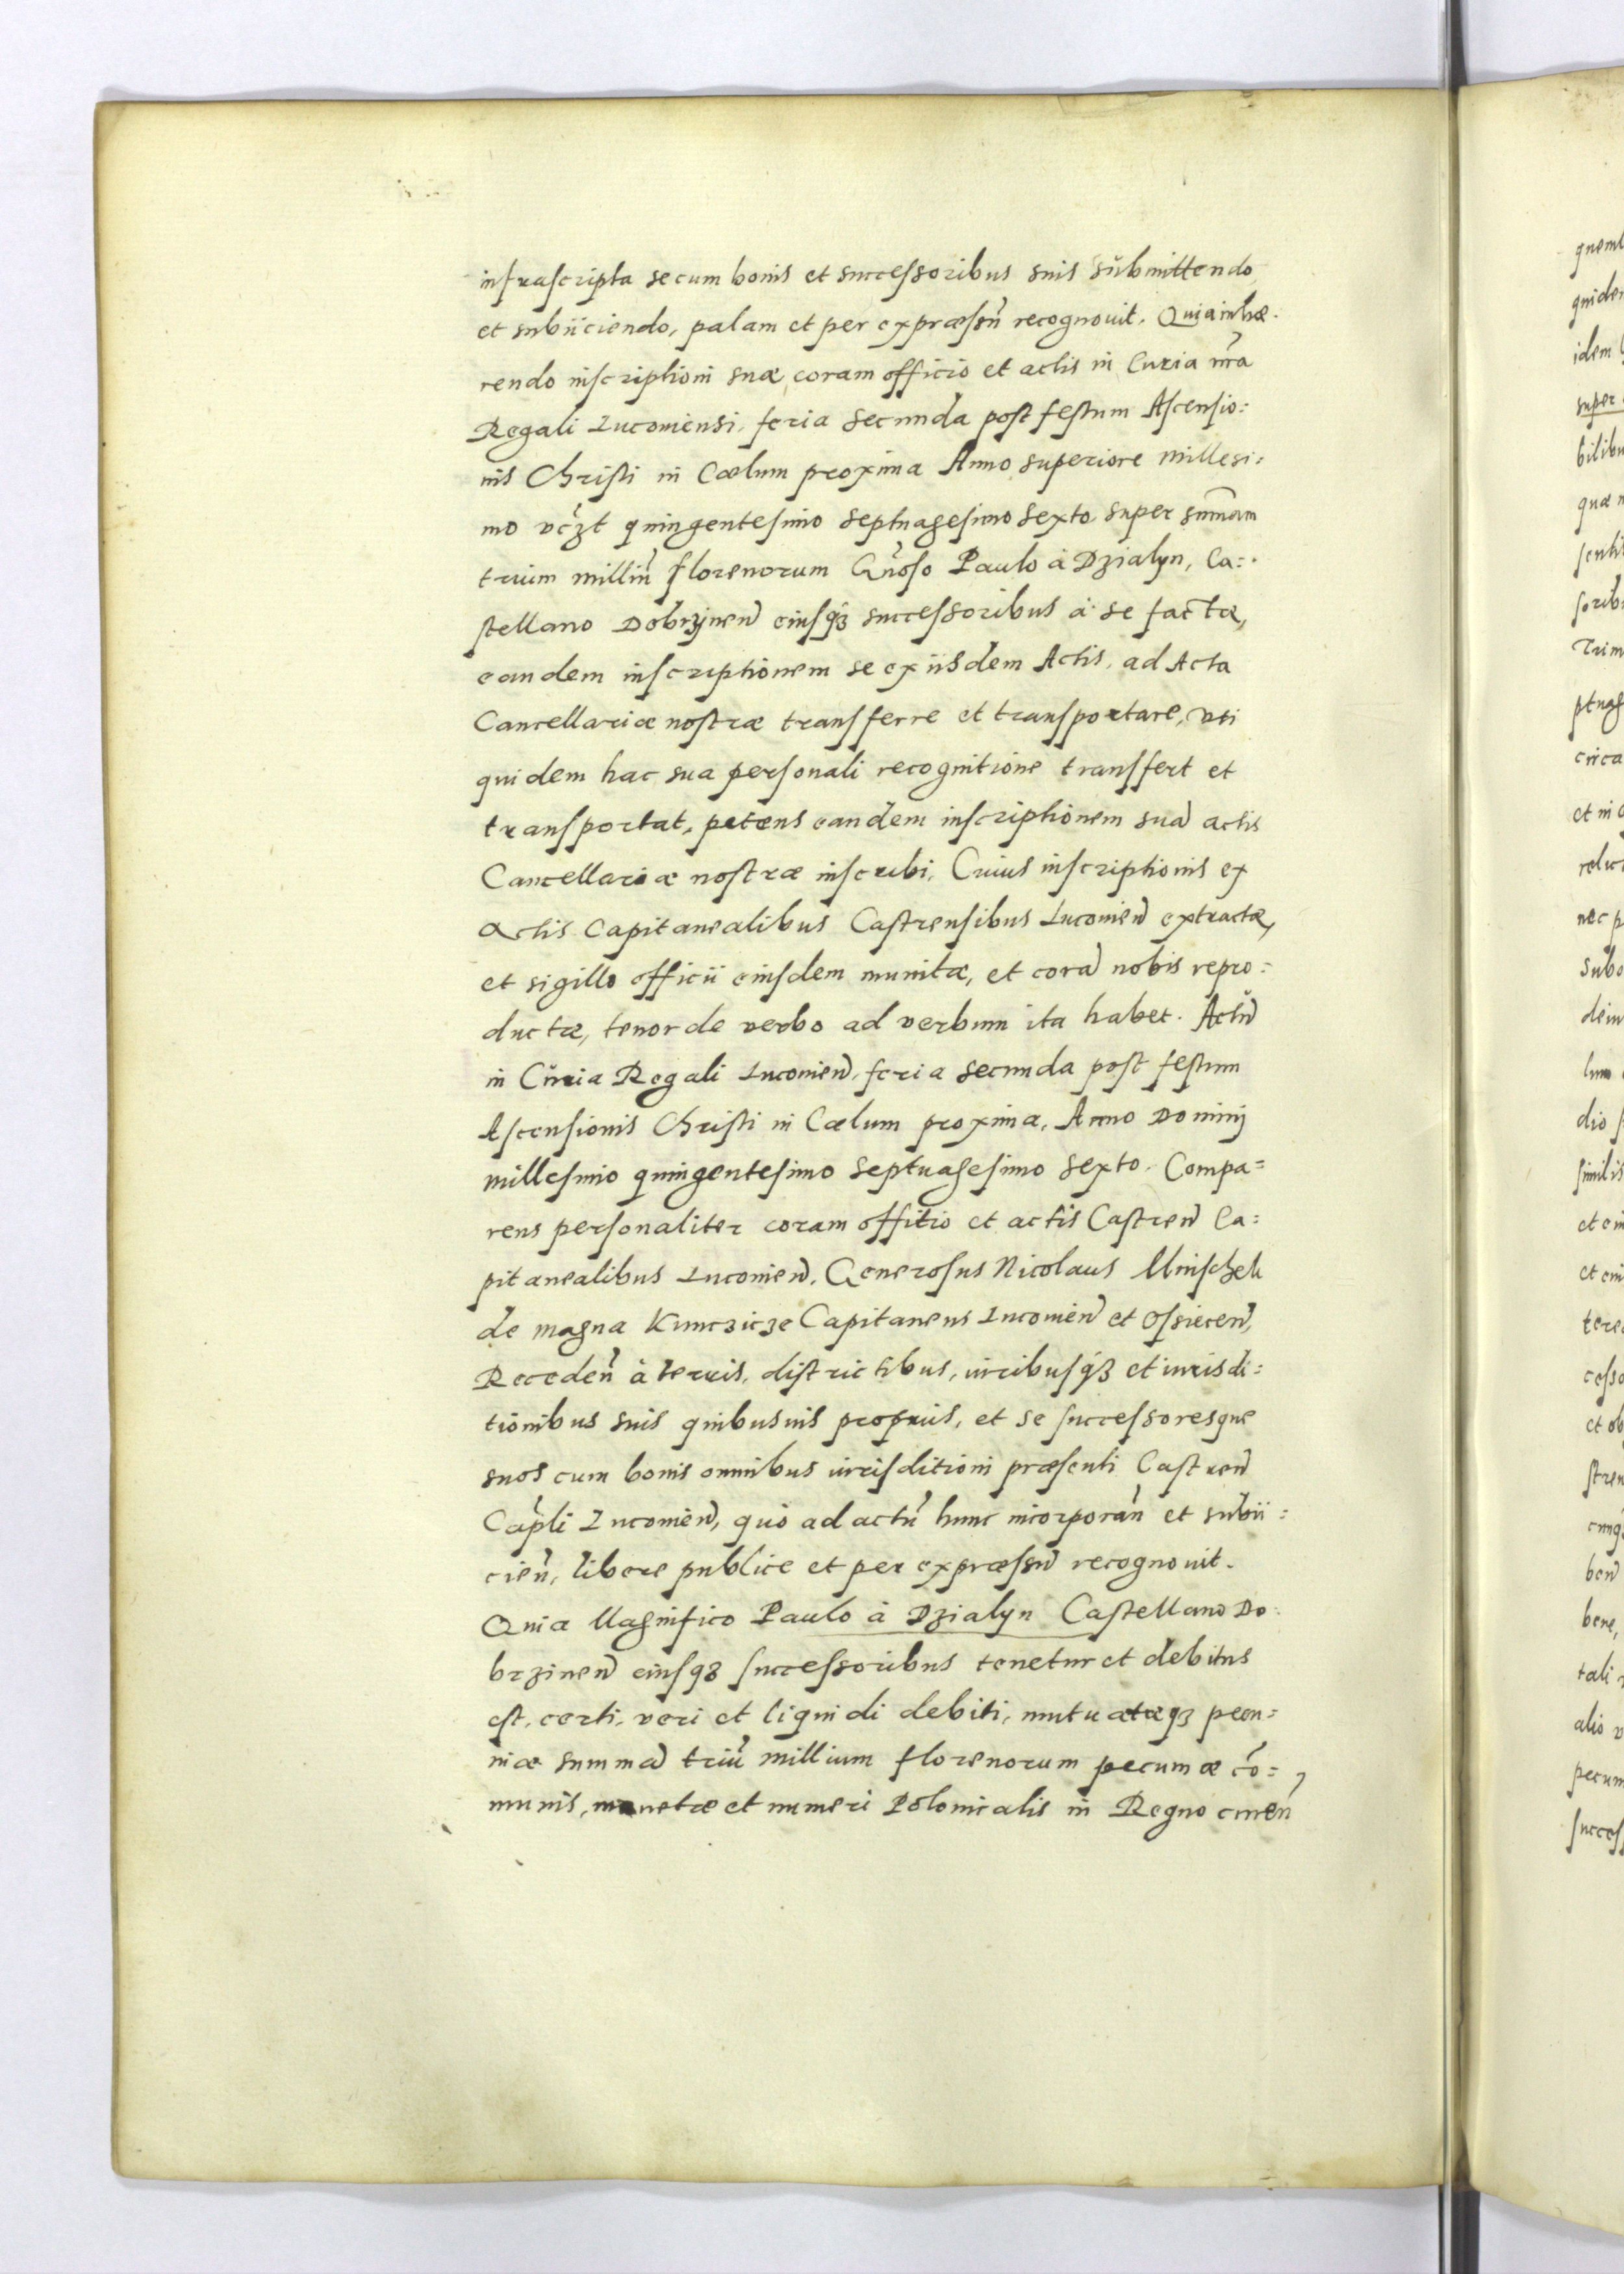 infrascripta se cum bonis et successoribus suis submittendo
et subiiciendo, palam et per expræssũ recognouit. Quia inhæ-
rendo inscriptioni suæ, coram officio et actis in Curia nr̃a
Regali Luconiensi, feria secunda post festum Ascensio=
nis Christi in Cœlum proxima Anno superiore millesi=
mo vc̃zt quingentesimo septuagesimo sexto super sum̃am
trium milliũ florenorum Gñoso Paulo à Dzialyn, Ca=
stellano Dobrzÿneñ eiusq́ȝ successoribus à se factæ,
eandem inscriptionem se ex iisdem Actis, ad Acta
Cancellariæ nostræ transferre et transportare, vti
quidem hac sua personali recognitione transfert et
transportat, petens eandem inscriptionem suã actis
Cancellariæ nostræ inscribi. Cuius inscriptionis ex
Actis Capitanealibus Castrensibus Luconieñ extractæ,
et sigillo officii eiusdem munitæ, et corã nobis repro=
ductæ, tenor de verbo ad verbum ita habet. Actũ
in Curia Regali Luconieñ feria secunda post festum
Ascensionis Christi in Cœlum proxima, Anno Dominij
millesimo quingentesimo septuagesimo sexto. Compa=
rens personaliter coram offitio et actis Castreñ Ca=
pitanealibus Luconieñ, Generosus Nicolaus Mnischek
de magna Kunczicze Capitaneus Lucovieñ et Ossieceñ,
Recedeñ à terris, districtibus, iuribusq́ȝ et iurisdi=
tionibus suis quibusuis proprius, et se successoresque
suos cum bonis omnibus iurisditioni præsenti Castreñ
Cap̃li Lucovieñ, quò ad actũ hunc incorporañ et subii=
cieñ, libere publice et per expræssũ recognouit.
Quia Magnifico Paulo à Dzialyn Castellano Do-
brzineñ eiusqȝ successoribus tenetur et debitus
est, certi, veri et liquidi debiti, mutuatæqȝ pecu=
niæ summã triũ millium florenorum pecuniæ cõ=
munis, monetæ et numeri Polonicalis in Regno curreñ